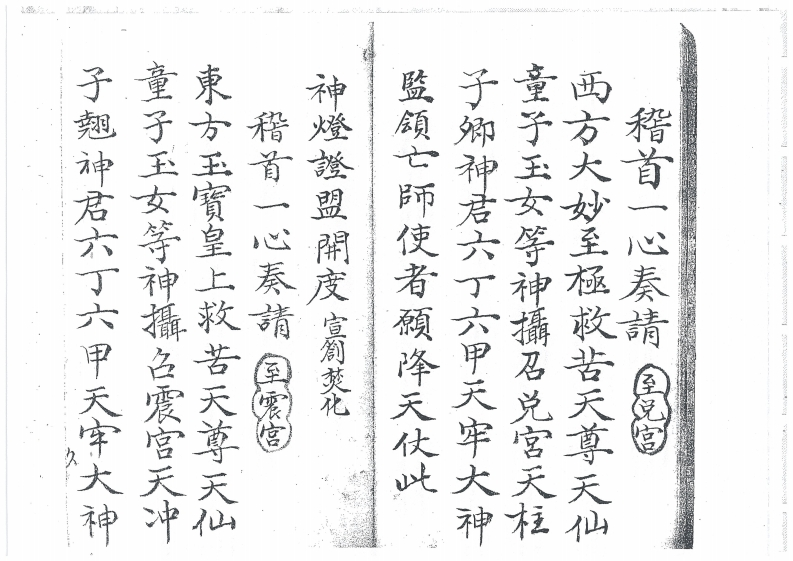 稽首一心奏請 至兌宮
西方大妙至極救苦天尊天仙
童子玉女等神攝召兑宮天柱
子卿神君六丁六甲天牢大神
監領亡師使者願降天仗此
神燈證盟開度 宣劄焚化
稽首一心奏請 至震宮
東方玉寶皇上救苦天尊天仙
童子玉女等神攝召震宮天冲
子翹神君六丁六甲天牢大神